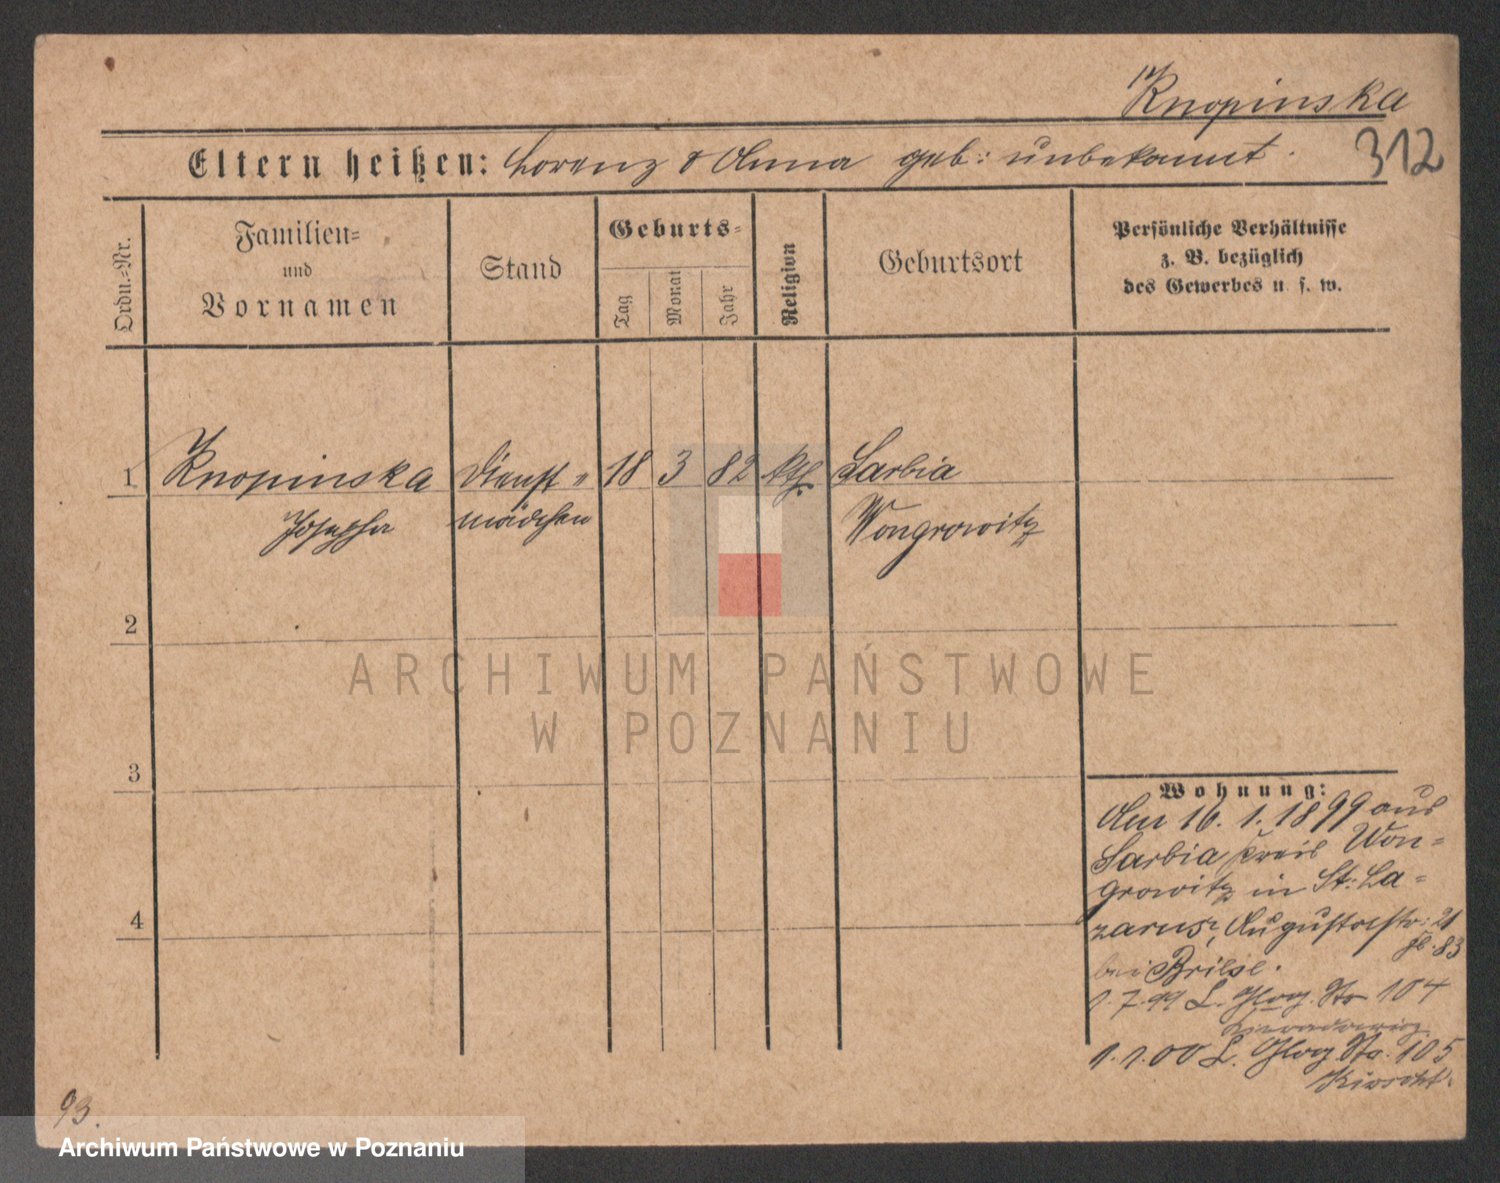 Knopinska
312
Eltern heißen: Lorenz & Anna geb: unbekannt.
Ordn.=Nr.
Familien=
und
Vornamen
Stand
Geburts=
Tag
Monat
Jahr
Religion
Geburtsort
Persönliche Verhältnisse
z. B. bezüglich
des Gewerbes u. s. w.
1 Knopinska Dienst= 18 3 82 kth. Sarbia
Josepha mädchen Wongrowitz
2
3
4
ARCHIWUM PAŃSTWOWE
W POZNANIU
Wohnung:
Am 16. 1. 1899 aus
Sarbia Kreis Won=
growitz in St: La=
zarus, Augustastr: 21
bei
1. 7. 99 L. Glog. Str 104
1. 1. 00 L. Glog Str. 105
93.
Archiwum Państwowe w Poznaniu